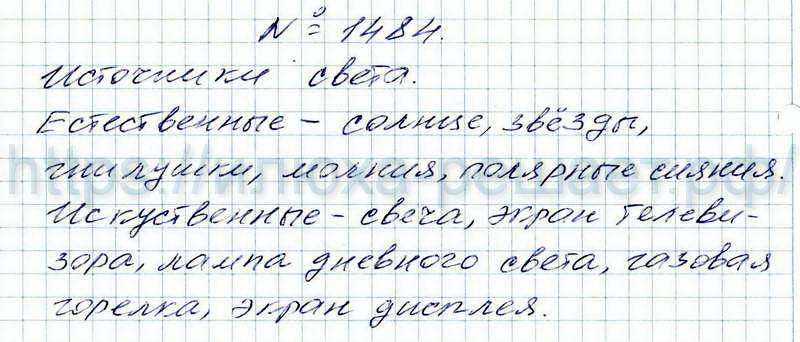 № 1484.
Источники света.
Естественные – солнце, звёзды,
гнилушки, молния, полярные сияния.
Искуственные – свеча, экран телеви-
зора, лампа дневного света, газовая
горелка, экран дисплея.